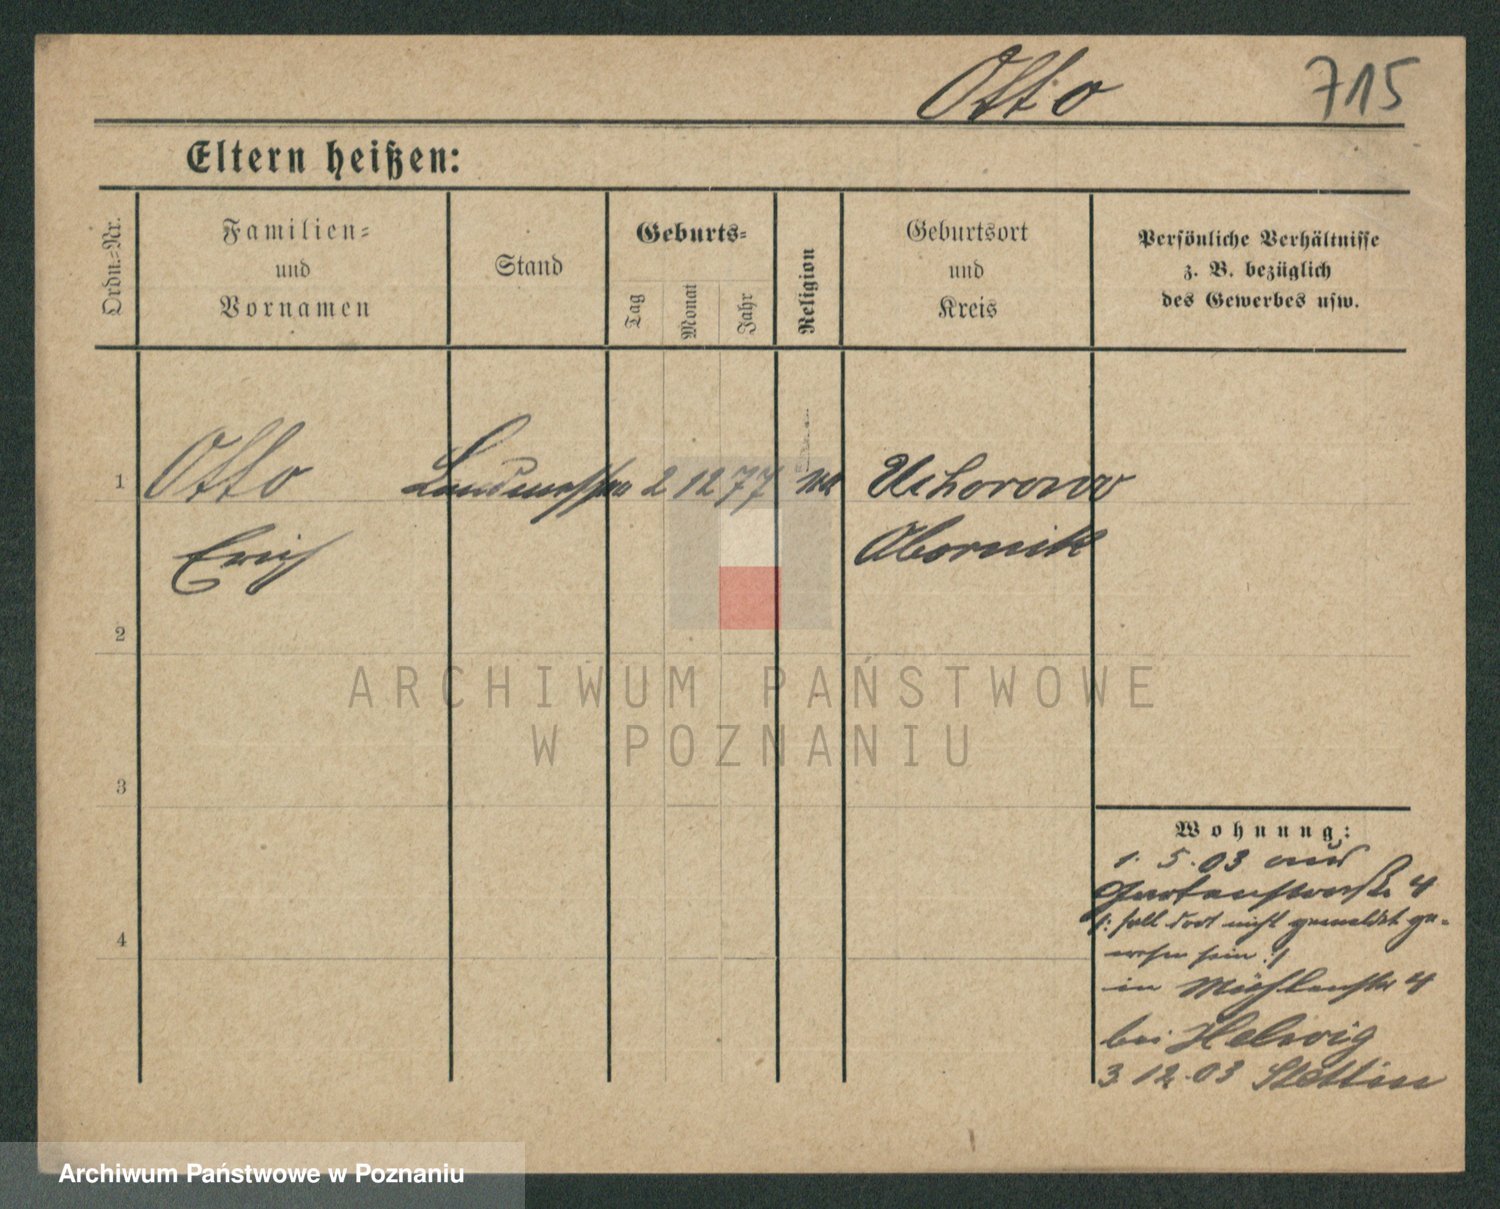 Otto 715
Eltern heißen:
Ordn.-Nr.
Familien-
und
Vornamen
Stand
Geburts-
Tag
Monat
Jahr
Religion
Geburtsort
und
Kreis
Persönliche Verhältnisse
z. B. bezüglich
des Gewerbes usw.
1 Otto Landmesser 2 12 77 Uchorowo
Erich Obornik
2
3
4
ARCHIWUM PAŃSTWOWE
W POZNANIU
Wohnung:
1. 5. 03 aus
Gartenstraße 4
/: soll dort nicht gemeldet ge-
wesen sein :/
in Mühlenstr 4
bei Helwig
3. 12. 03 Stettin
Archiwum Państwowe w Poznaniu